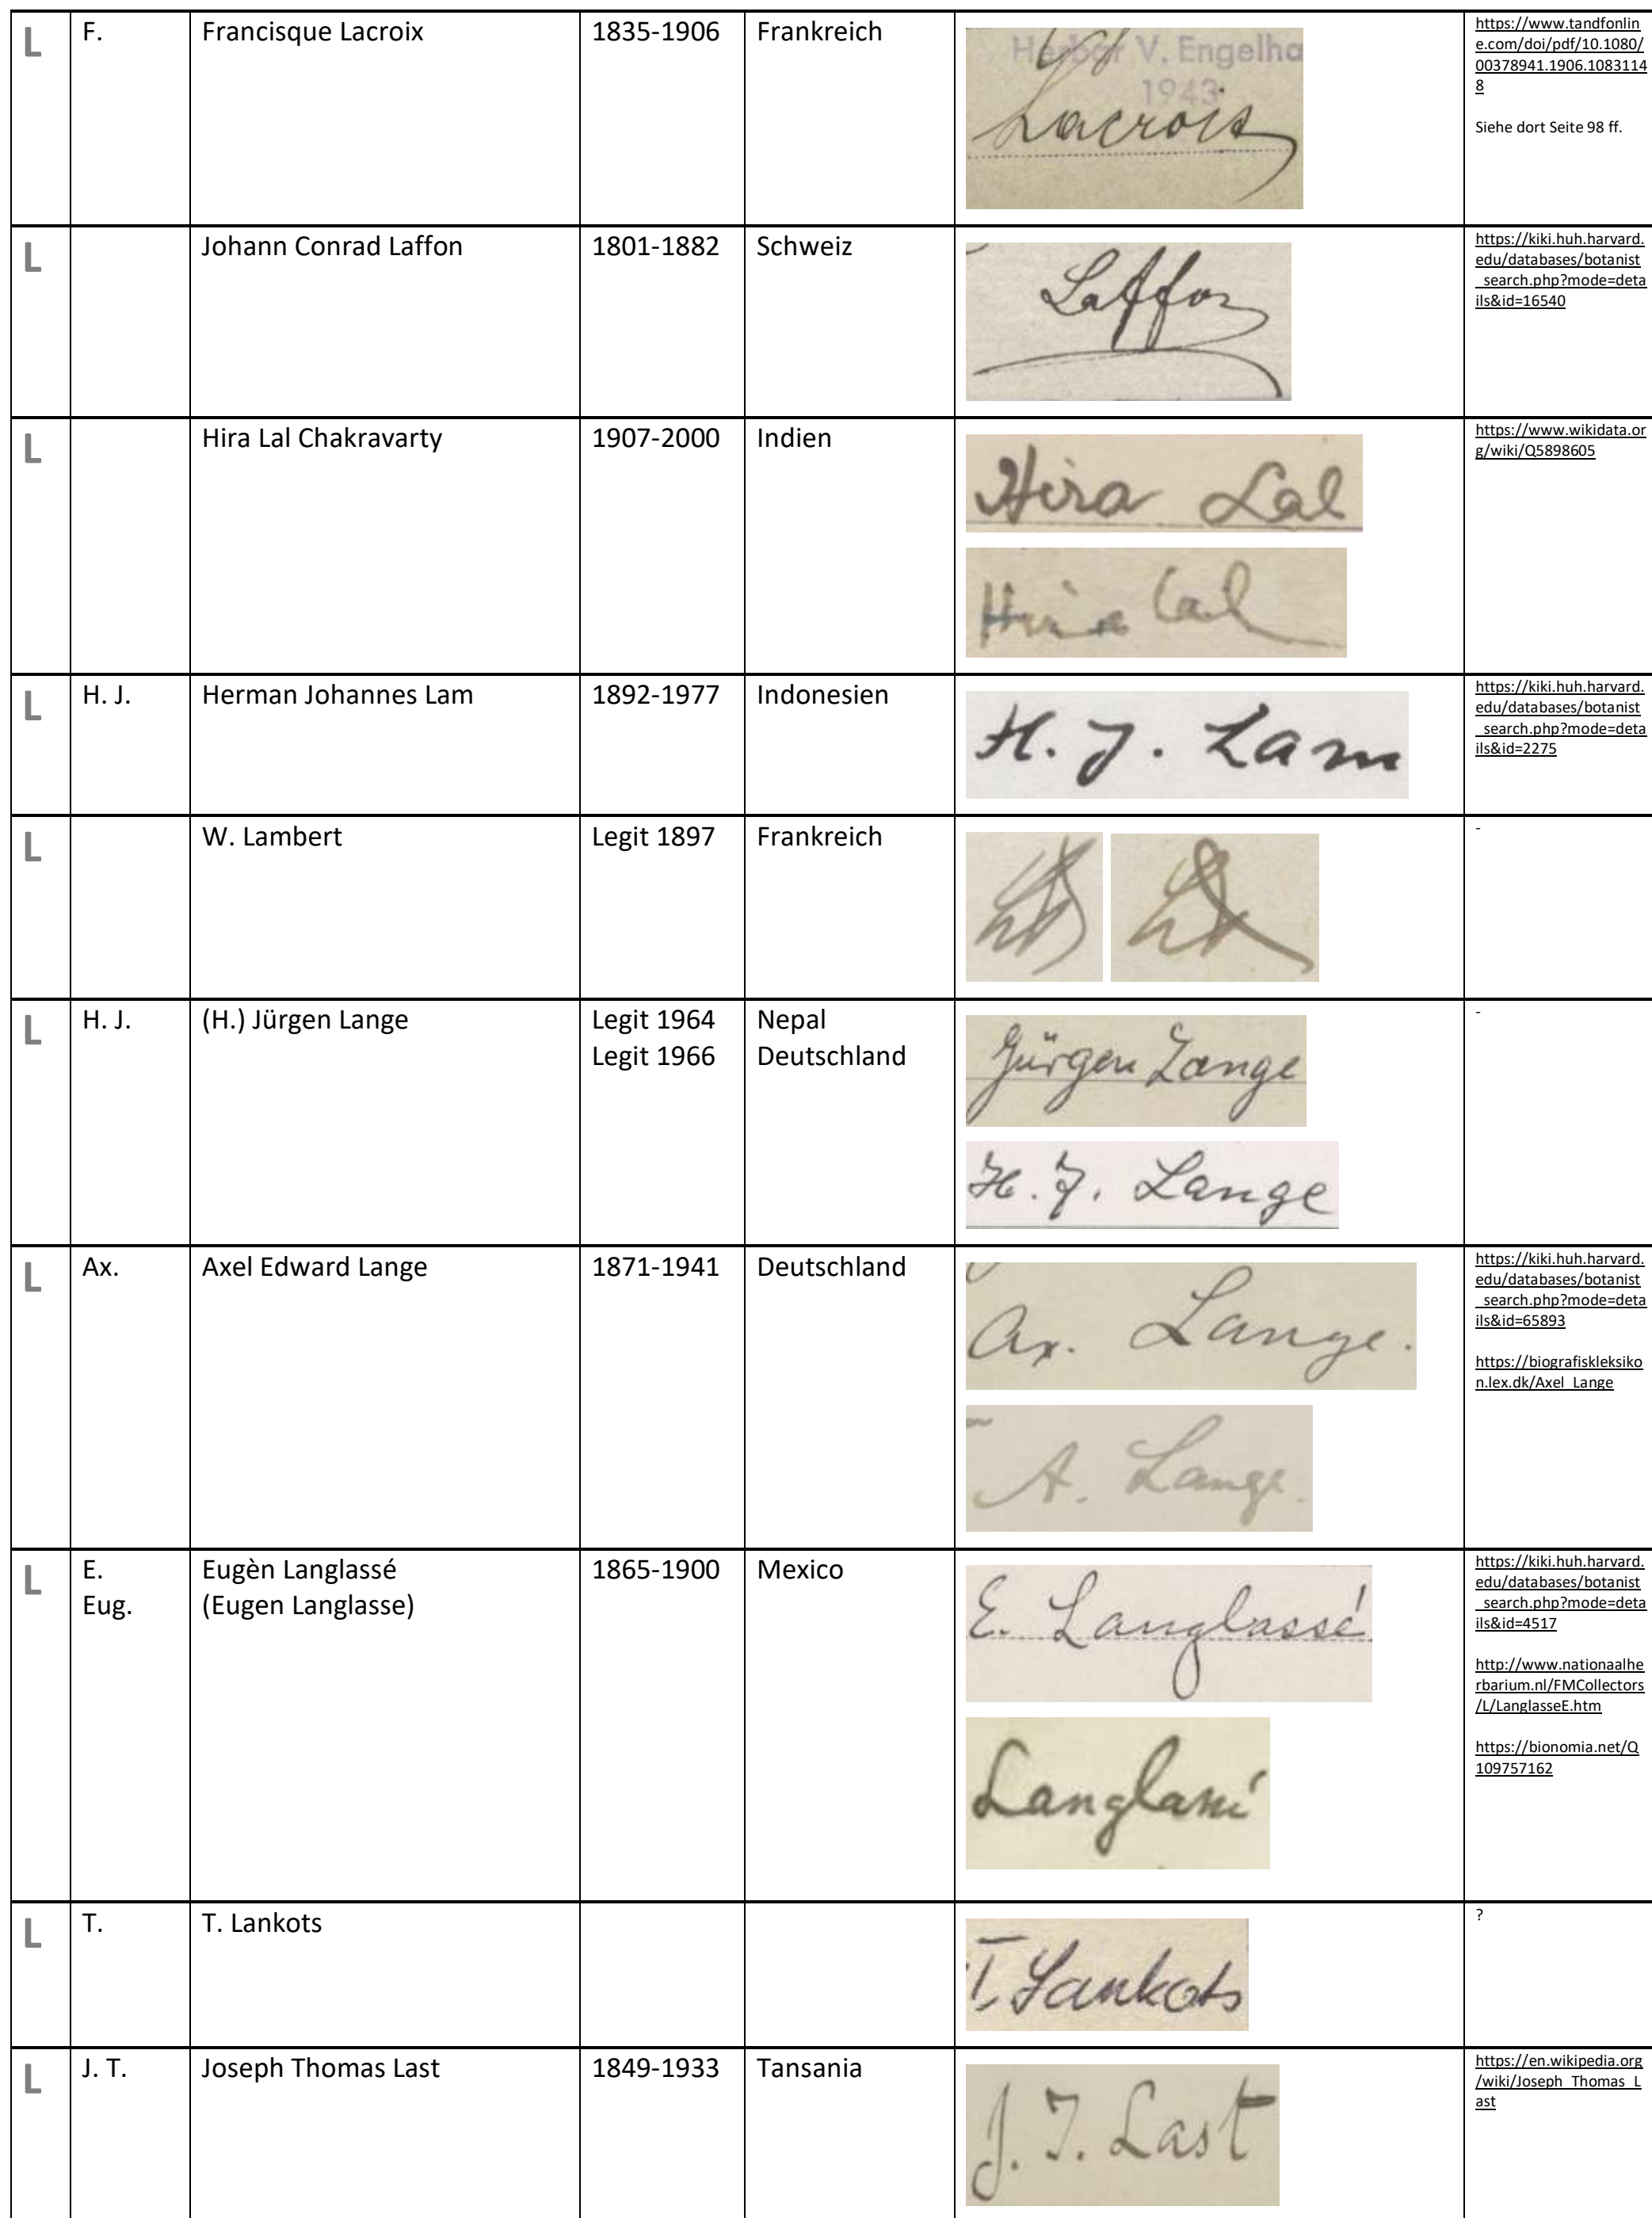 L F. Francisque Lacroix 1835-1906 Frankreich
Herbar V. Engelha
1943
Lacroix
https://www.tandfonlin
e.com/doi/pdf/10.1080/
00378941.1906.1083114
8
Siehe dort Seite 98 ff.
L Johann Conrad Laffon 1801-1882 Schweiz
Laffon
https://kiki.huh.harvard.
edu/databases/botanist
_search.php?mode=deta
ils&id=16540
L Hira Lal Chakravarty 1907-2000 Indien
Hira Lal
Hira Lal
https://www.wikidata.or
g/wiki/Q5898605
L H. J. Herman Johannes Lam 1892-1977 Indonesien
H. J. Lam
https://kiki.huh.harvard.
edu/databases/botanist
_search.php?mode=deta
ils&id=2275
L W. Lambert Legit 1897 Frankreich
-
L H. J. (H.) Jürgen Lange Legit 1964 Nepal
Legit 1966 Deutschland
Jürgen Lange
H. J. Lange
-
L Ax. Axel Edward Lange 1871-1941 Deutschland
Ax. Lange.
A. Lange.
https://kiki.huh.harvard.
edu/databases/botanist
_search.php?mode=deta
ils&id=65893
https://biografiskleksiko
n.lex.dk/Axel_Lange
L E. Eugèn Langlassé 1865-1900 Mexico
Eug. (Eugen Langlasse)
E. Langlassé
Langlassé
https://kiki.huh.harvard.
edu/databases/botanist
_search.php?mode=deta
ils&id=4517
http://www.nationaalhe
rbarium.nl/FMCollectors
/L/LanglasseE.htm
https://bionomia.net/Q
109757162
L T. T. Lankots
T. Lankots
?
L J. T. Joseph Thomas Last 1849-1933 Tansania
J. T. Last
https://en.wikipedia.org
/wiki/Joseph_Thomas_L
ast